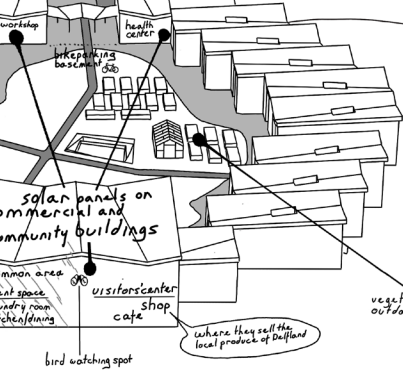 workshop
health
center
bikeparking
basement
solar panels on
commercial and
community buildings
common area
event space
laundry room
kitchen/dining
visitors'center
shop
cafe
where they sell the
local produce of Delfland
bird watching spot